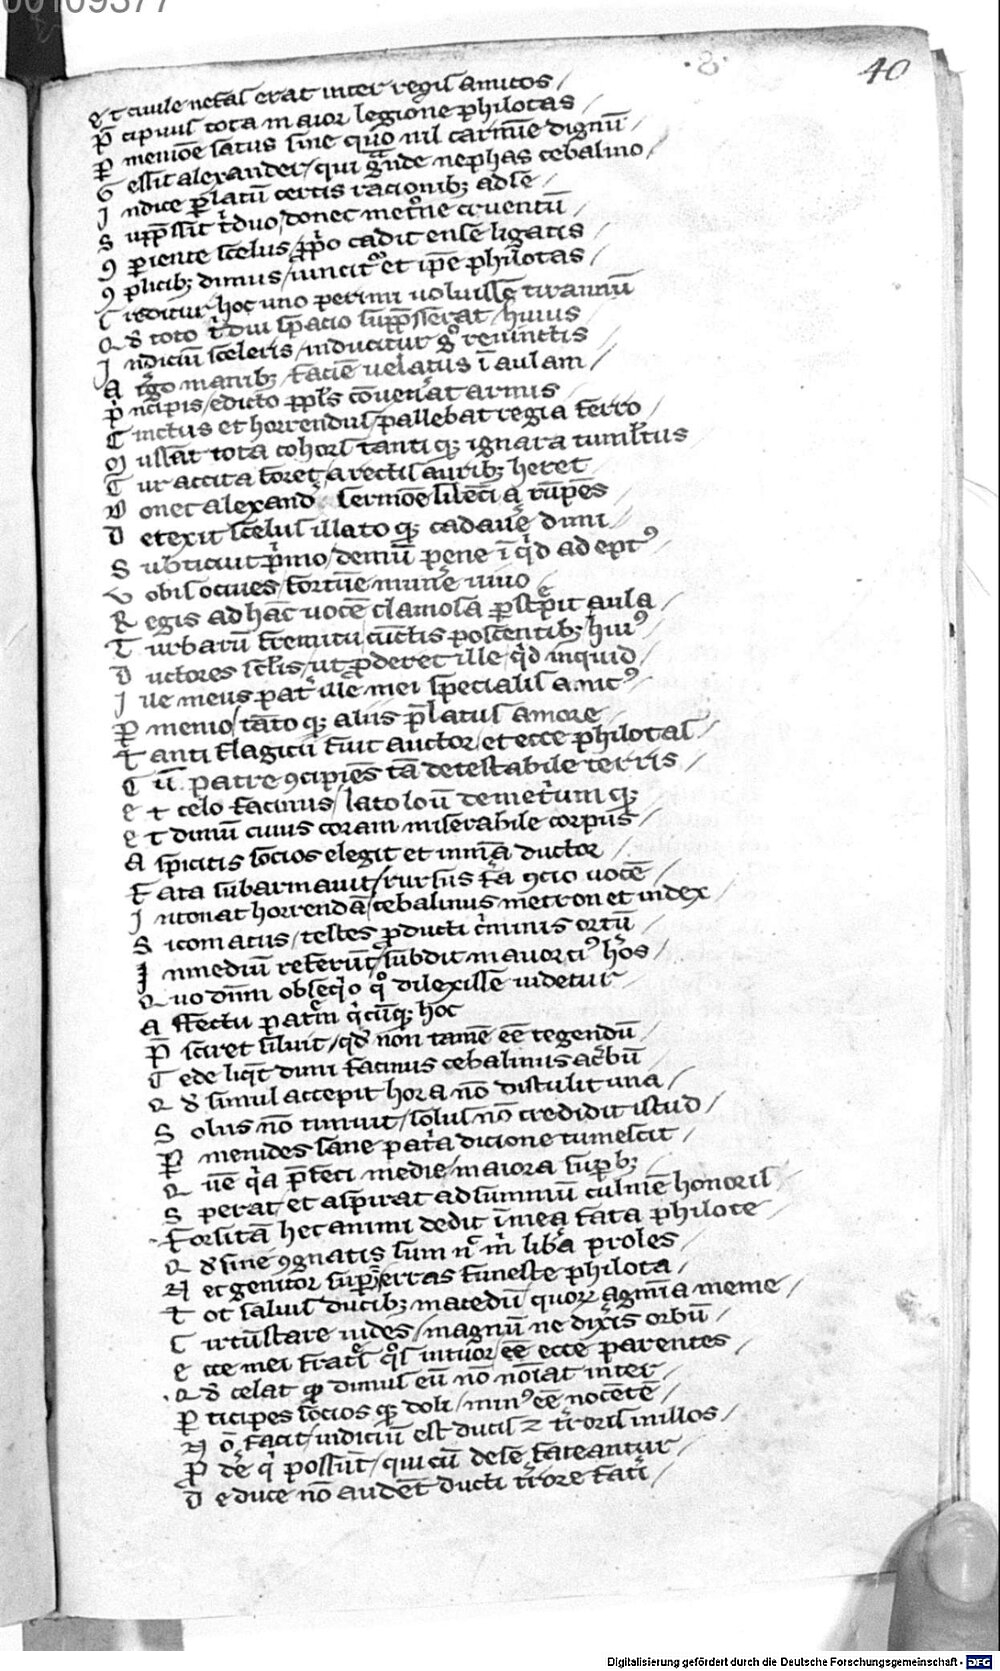 00109377
·8· 40
et ciuile nefas erat inter regis amicos /
P̄ cipuus tota maior legione philotas /
ꝑ menióe satus sine quo nil carmīe dignū /
G essit alexander / qui gͣnde nephas cebalino /
I ndice ꝑlatū certis racionibꝫ ad se /
S upp̄ssit tͥduo / donec metrͦne cruentū /
ꝯ periente scelus / ꝓpͥo cadit ense ligatis /
ꝯ plicibꝫ dimus / uincitᷣ et ip̄e philotas /
C reditur hoc uno perimi uoluisse tirannū
Q đ toto tͥdui spacio supp̄sserat huius
I ndiciū sceleris / inducitur gͦ reuinctis
A tͬgo manibꝫ / faciē uelatus ī aulam /
pͥ ncipis / edicto ppl̄s cōuenͣat armis
C inctus et horrendus / pallebat regia ferro /
M ussat tota cohors tantiqꝫ ignara tumultus
C ur accita foret / arectis auribꝫ heret
D onec alexandͬ sermōe silēcia rūpēs
D etexit scelus illatoqꝫ cadaue dimi
S ubticuit pͥmo / demū pene īqͥd ademptꝰ
V obis o ciues / fortūe munͤe uiuo
R egis ad hāc uocē clamosa ꝑstrepit aula /
T urbarū fremitu cūctis poscentibꝫ huiꝰ /
D uctores scel̓is / ut ꝓderet ille / qͥd inquid /
I lle meus patͬ ille mei specialis amicꝰ /
ꝑ menio / tātoqꝫ aliis p̄latus amore /
T anti flagicii fuit auctor / et ecce philotas /
C ū patre ꝯcipiēs tā detestabile terris /
e t celo facinus / lato loū demetͥumqꝫ
e t dimū cuius coram miserabile corpus /
A spicitis socios elegit et in mͣa ductor /
F ata subarmauit / rursus fͣa ꝯcio uocē /
I ntonat horrendā / cebalinus metron et index
S icomacus / testes ꝓducti cͥminis ortū /
I n mediū referūt / subdit mauorciꝰ hͦos /
Q uo dn̄m obseqͥo qͦ dilexisse uidetur
A ffectu patͬm qͥcūqꝫ hoc
P̄ sciret siluit / qđ non tamē eē tegendū /
C ede liqꝫt dimi facinus cebalinus acͤbū /
Q đ simul accepit hora nō distulit una /
S olus nō timuit / solus nō credidit istud /
ꝑ menides sane patͥa dicione tumescit /
Q uē qͥa p̄feci medie / maiora suꝑbꝫ /
S perat / et aspirat ad summū culmē honoris /
F orsitā hec animi dedit ī mea fata philote /
Q đ sine ꝯgnatis sum nͨ mͥ libͣa proles
N ec genitor suꝑͤ / erras funeste philota /
T ot saluis ducibꝫ macedū quoꝝ agmīa meme /
C ircūstare uides / magnū ne dixͤis orbū /
e cce mei fratͤs qͦs intuor / eē ecce parentes /
Q đ celat qꝫ dimus eū nō noīat inter /
ꝑ ticipes sociosqꝫ doli / minꝰ eē nocētē /
N ō facit / indiciū est ducis ⁊ tͬroris in illos /
ꝓ dͤe qͥ possūt / qui cū de se fateantur /
D e duce nō audēt ducti tͬrore fatͥi /
Digitalisierung gefördert durch die Deutsche Forschungsgemeinschaft - DFG